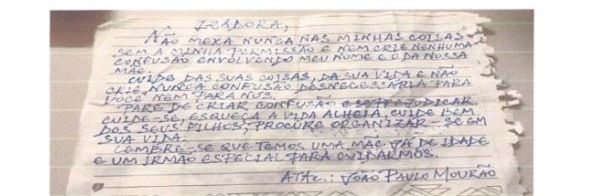 IZADORA,
NÃO MEXA NUNCA NAS MINHAS COISAS
SEM A MINHA PERMISSÃO E NEM CRIE NENHUMA
CONFUSÃO ENVOLVENDO MEU NOME E O DA NOSSA
MÃE.
CUIDE DAS SUAS COISAS, DA SUA VIDA E NÃO
CRIE, NUNCA CONFUSÃO DESNECESSÁRIA PARA
VOCÊ NEM PARA NÓS.
PARE DE CRIAR CONFUSÃO E SE PREJUDICAR
CUIDE-SE, ESQUEÇA A VIDA ALHEIA, CUIDE BEM
DOS SEUS FILHOS, PROCURE ORGANIZAR-SE EM
SUA VIDA.
LEMBRE-SE QUE TEMOS UMA MÃE JÁ DE IDADE
E UM IRMÃO ESPECIAL PARA CUIDARMOS.
ATTE.: JOÃO PAULO MOURÃO